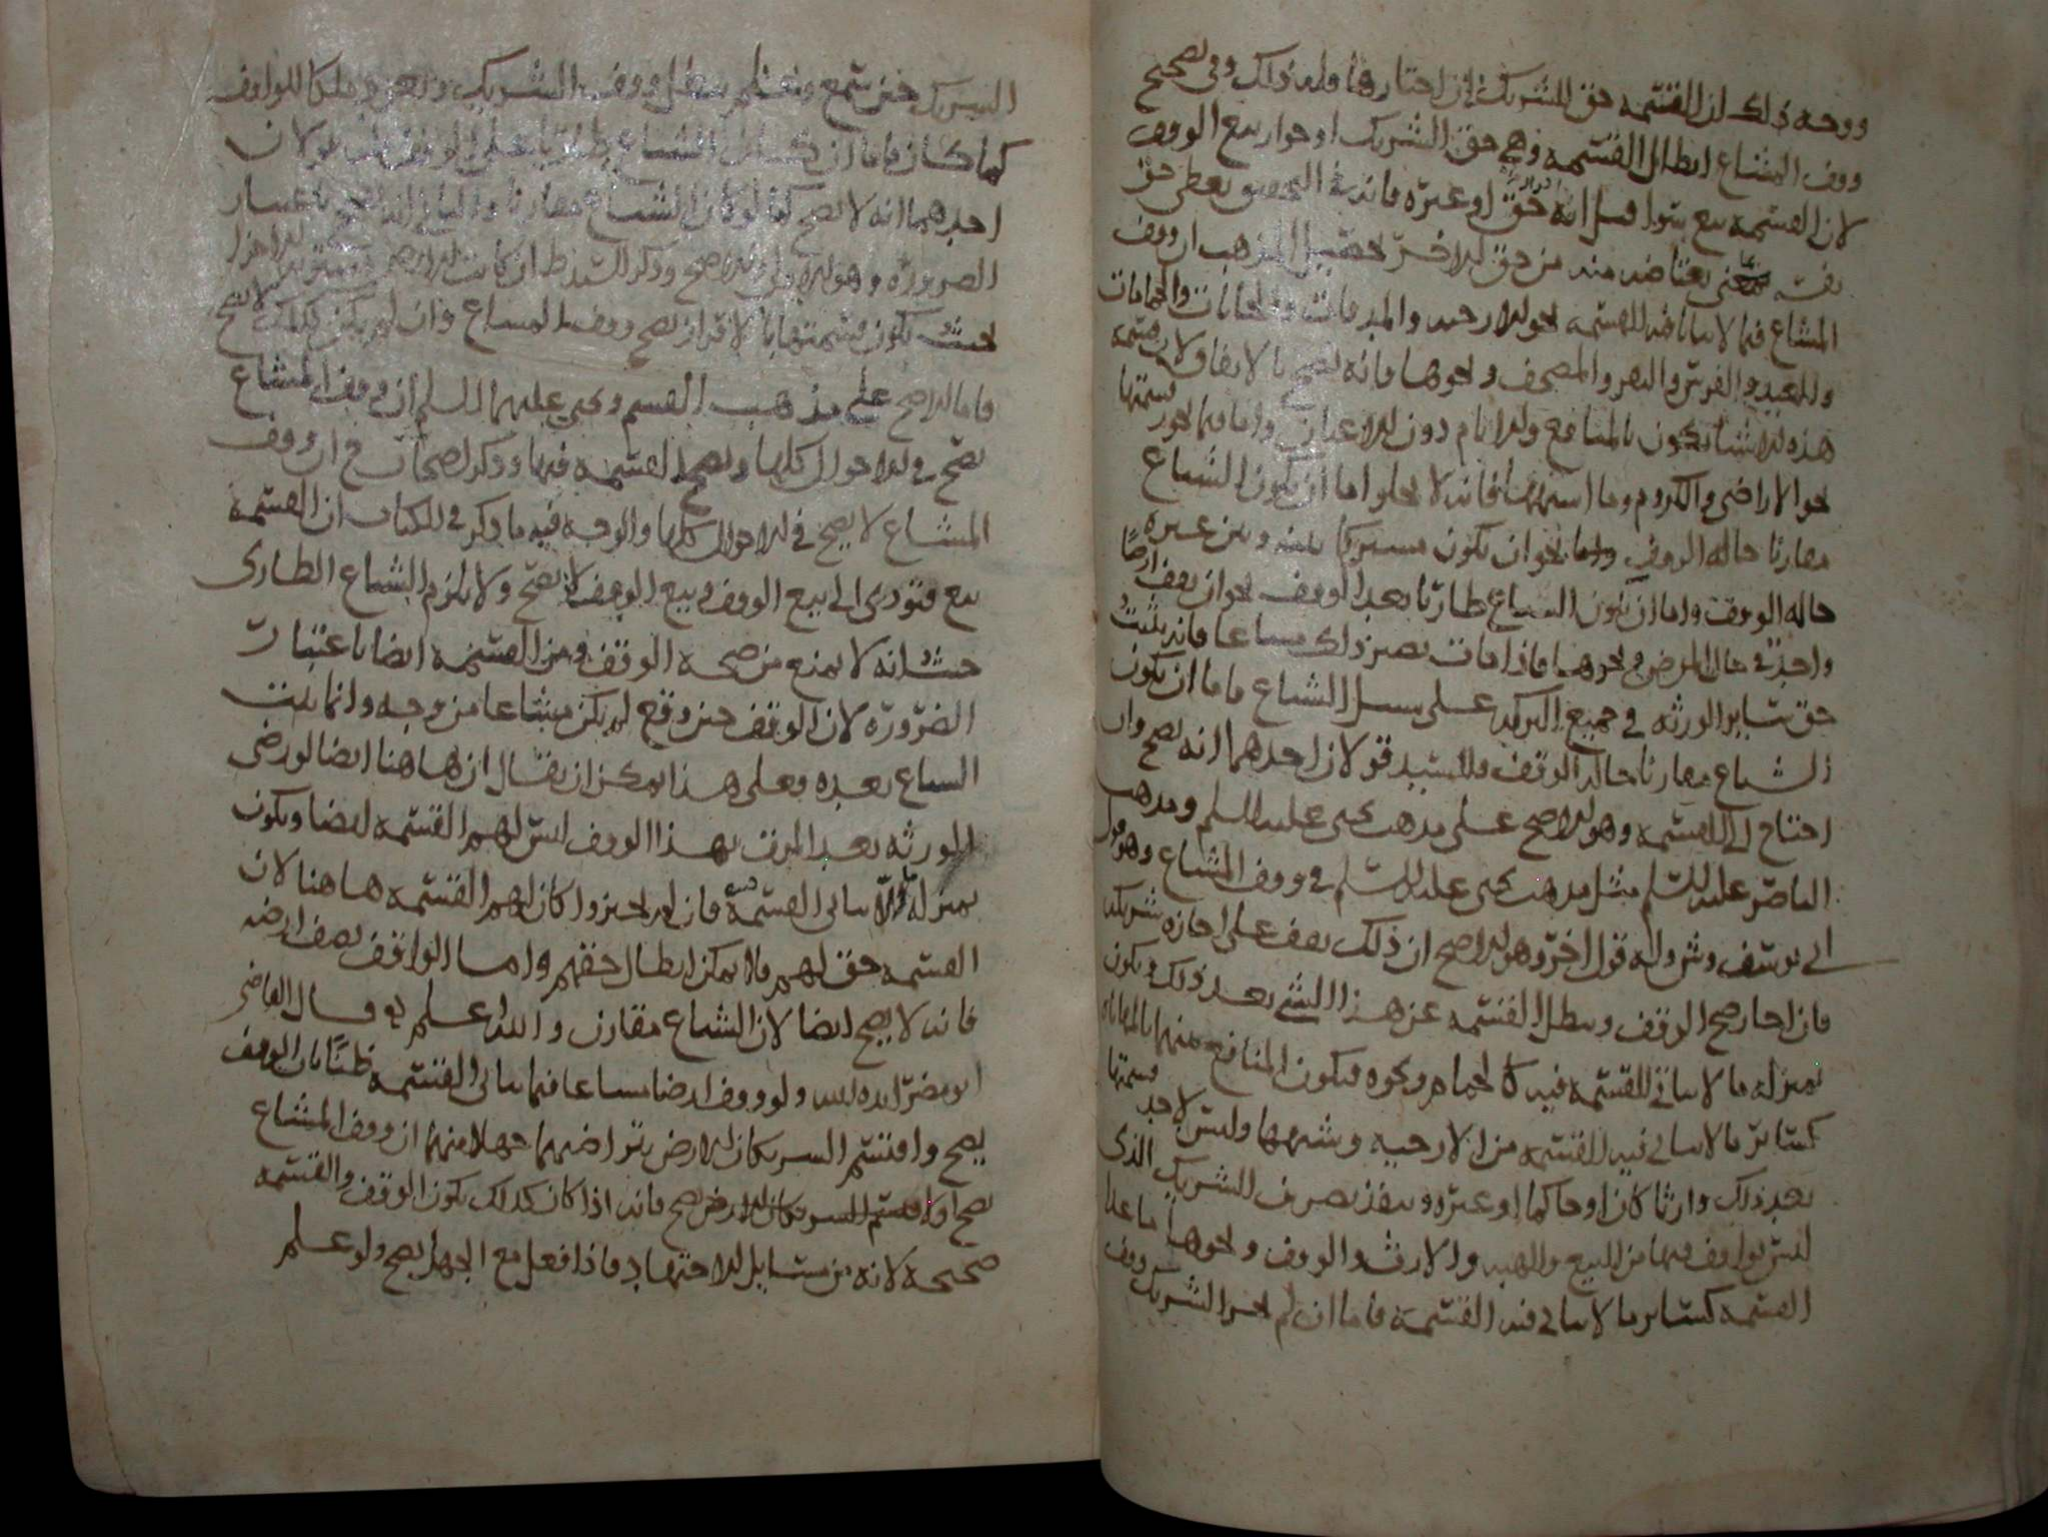 ووجه ذلك ان القسمه حق للشريك ان اختارها ولان ذلك وفي تصحيح
وقف المشاع ابطال القسمه وهي حق الشريك او جواز بيع الوقف
لان القسمه بيع سوا قيل انه حق او غيره فانه في التحقيق يعطي حق
نفسه يعتاض منه من حق الاخر تحصيل المذهب ان وقف
المشاع فيما لا يتاتى فيه القسمه نحو الارحيه والخانات والحمامات
والعبيد والفرس والبعير والمصحف ونحوها فانه يصح بالاتفاق لان قسمه
هذه الاشيا تكون بالمنافع والايام دون الاعيان واما فيما يجوز قسمتها
نحو الاراضي والكروم وما اشبهها فانه لا يخلوا اما ان يكون الشياع
مقارنا حاله الوقف نحو ان يكون مشتركا بينه وبين غيره
حاله الوقف واما ان يكون الشياع طاريا بعد الوقف نحو ان يقف ارضا
واحده في حال المرض ونحوها فاذا مات يصير ذلك مشاعا فانه يثبت
حق ساير الورثه في جميع التركه على سبيل الشياع فاما ان يكون
الشياع مقارنا حاله الوقف فللسيد قولان احدهما انه يصح وان
احتاج الى القسمه وهو الاصح على مذهب يحيى عليه السلم ومذهب
الناصر عليه السلم مثل مذهب يحيى عليه السلم في وقف المشاع وهو قول
ابي يوسف وش وله قول اخر وهو الاصح ان ذلك يقف على اجازه شريكه
فان اجاز صح الوقف وبطل القسمه عن هذا الشي بعد ذلك ويكون
بمنزله ما لا يتاتى القسمه فيه كالحمام ونحوه فيكون المنافع بينهما بالمهاياه
كساير ما لا يتاتى فيه القسمه من الارحيه وشبهها وليس لاحد قسمتها
بعد ذلك وارثا كان او حاكما او غيره وينفذ تصرف الشريك الذي
ليس بواقف فيها من البيع والهبه والارث والوقف ونحوها ما عدا
القسمه كساير ما لا يتاتى فيه القسمه فاما ان لم يجز الشريك وقف
الشريك حين سمع وعلم بطل وقف الشريك ويعود ملكا للواقف
كما كان فاما ان كان الشياع طاريا على الوقف ففيه قولان
احدهما انه لا يصح كما لو كان الشياع مقارنا والثاني انه يصح باعتبار
الضروره وهو الاصح وذكر السيد ط ان كانت الارض مستويه الاجزا
بحيث تكون قسمتها بالاقراز يصح وقف المشاع وان لم يكن كذلك لا يصح
فاما الاصح على مذهب القسم ويحيى عليهما السلم ان وقف المشاع
يصح في الاحوال كلها ويصح القسمه فيها وذكر اصحاب ح ان وقف
المشاع لا يصح في الاحوال كلها والوجه فيه ما ذكر في الكتاب ان القسمه
بيع فتودي الى بيع الوقف وبيع الوقف لا يصح ولا يلزم الشياع الطارى
حيث انه لا يمنع من صحه الوقف ومن القسمه ايضا باعتبار
الضروره لان الوقف حين وقع لم يكن مشاعا من وجه وانما يثبت
الشياع بعده فعلى هذا يمكن ان يقال ان هاهنا ايضا لو رضي
الورثه بعد الموت بهذا الوقف ليس لهم القسمه ايضا ويكون
بمنزله ما لا يتاتى القسمه فيه فان لم يجيزوا كان لهم القسمه هاهنا لان
القسمه حق لهم فلا يمكن ابطال حقهم واما الواقف نصف ارضه
فانه لا يصح ايضا لان الشياع مقارن والله اعلم قال القاضي
ابو مضر ايده الله ولو وقف ارضا مشاعا فيما يتاتى القسمه ظنا بان الوقف
يصح واقتسم الشريكان الارض بتراضيهما جهلا منهما ان وقف المشاع
يصح او لا يصح فانه اذا كان كذلك يكون الوقف والقسمه
صحيحه لانه من مسايل الاجتهاد فاذا فعل مع الجهل يصح ولو علم